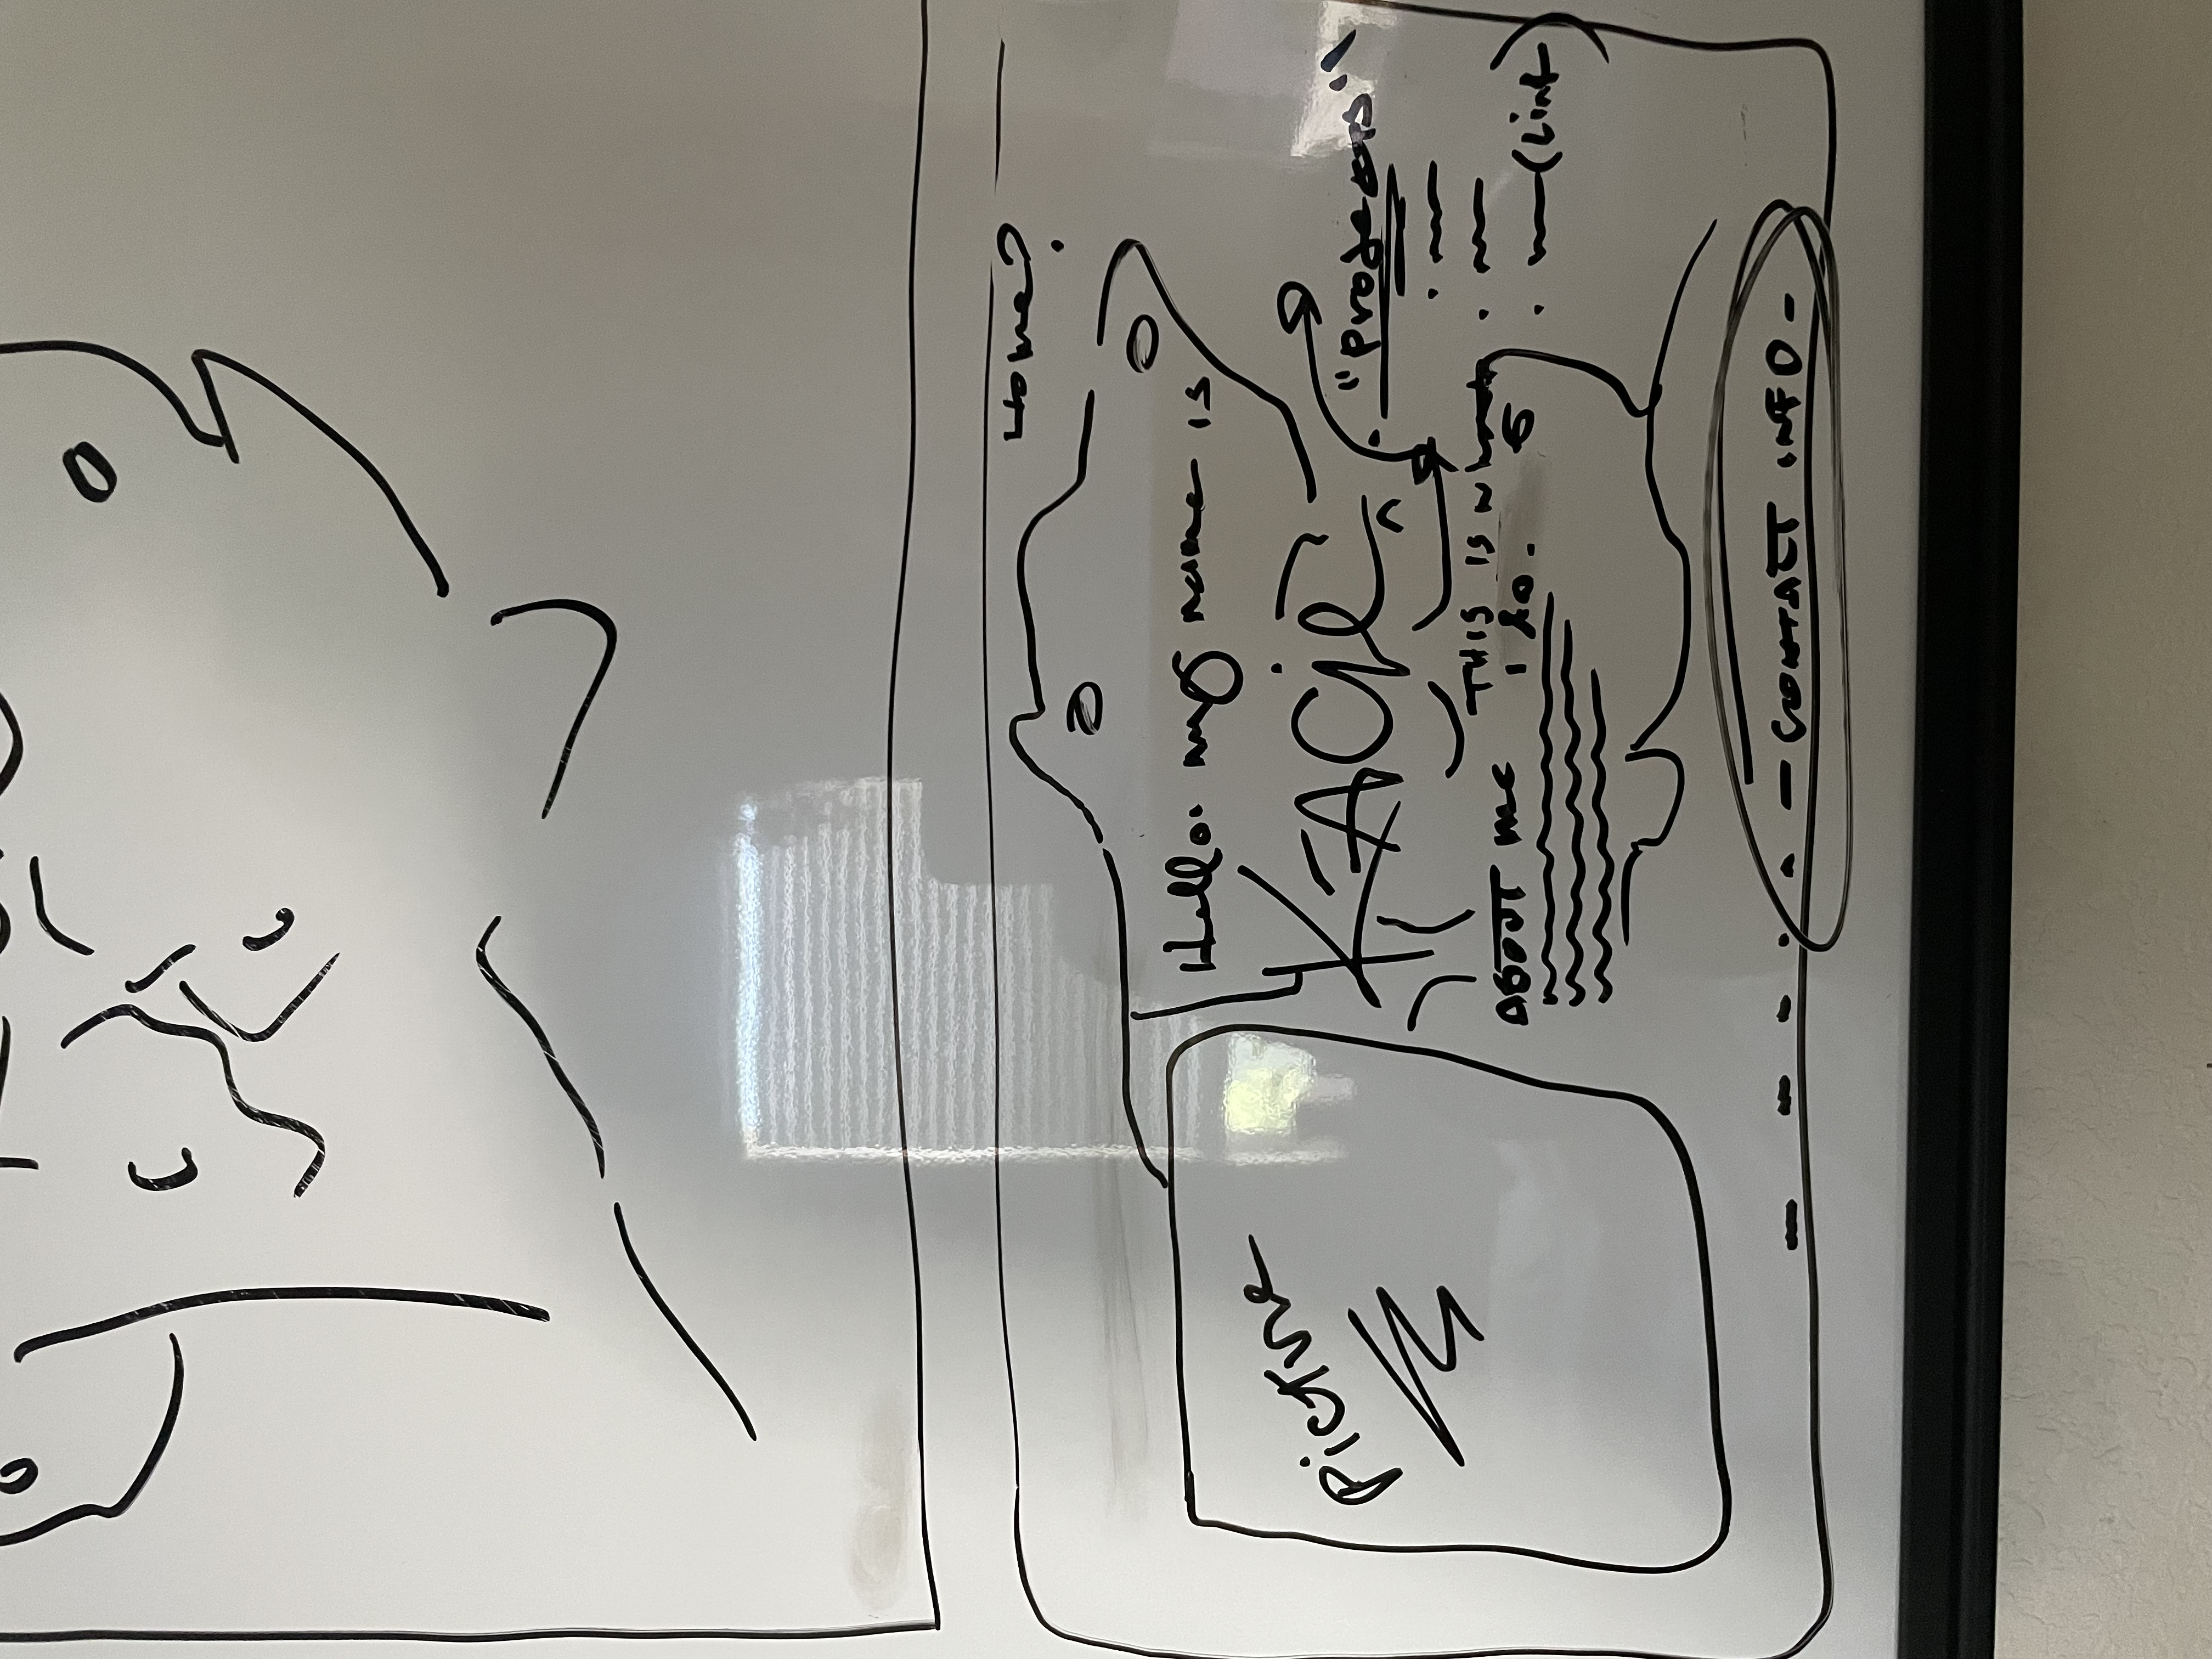 Home?
Hello. my name is
Picture
KACIE
"Projects"
THIS IS what
I do.
ABOUT me
(Link)
- CONTACT INFO -